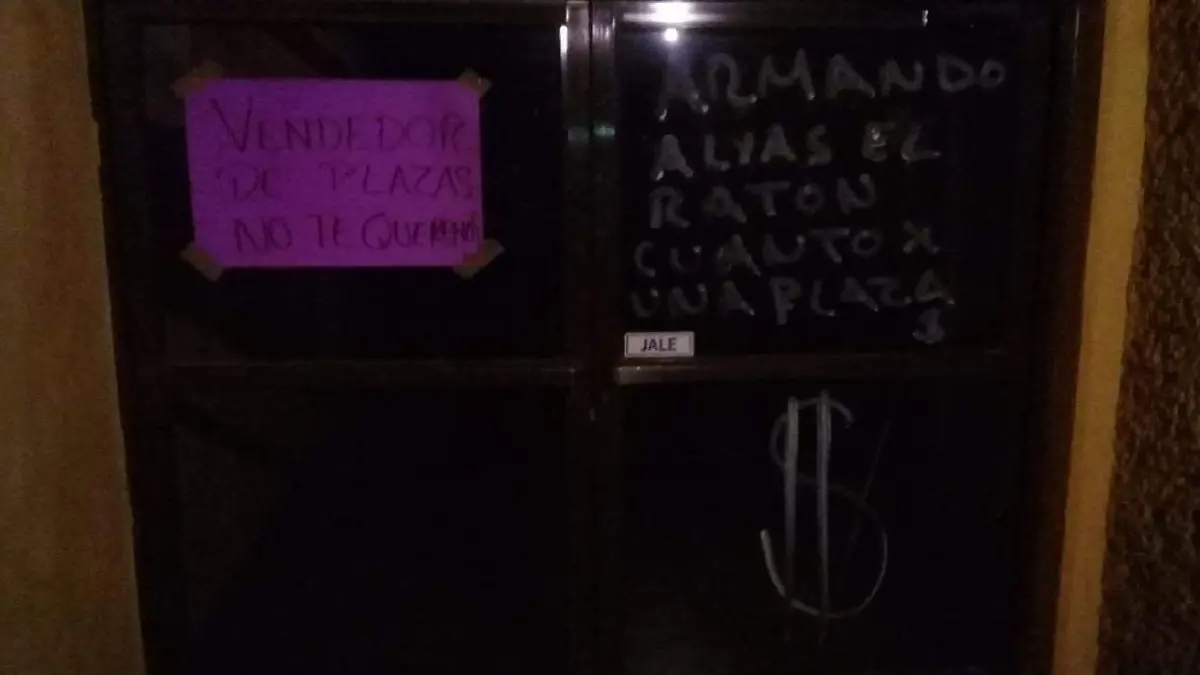 VENDEDOR
DE PLAZAS
NO TE QUEREMOS
ARMANDO
ALIAS EL
RATON
CUANTO X
UNA PLAZA
$
JALE
$